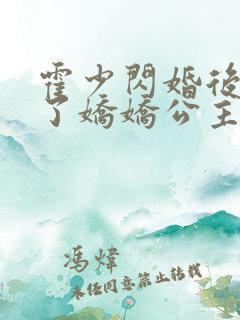 霍少閃婚後
了嬌嬌公主
馮煒
未經同意禁止轉載